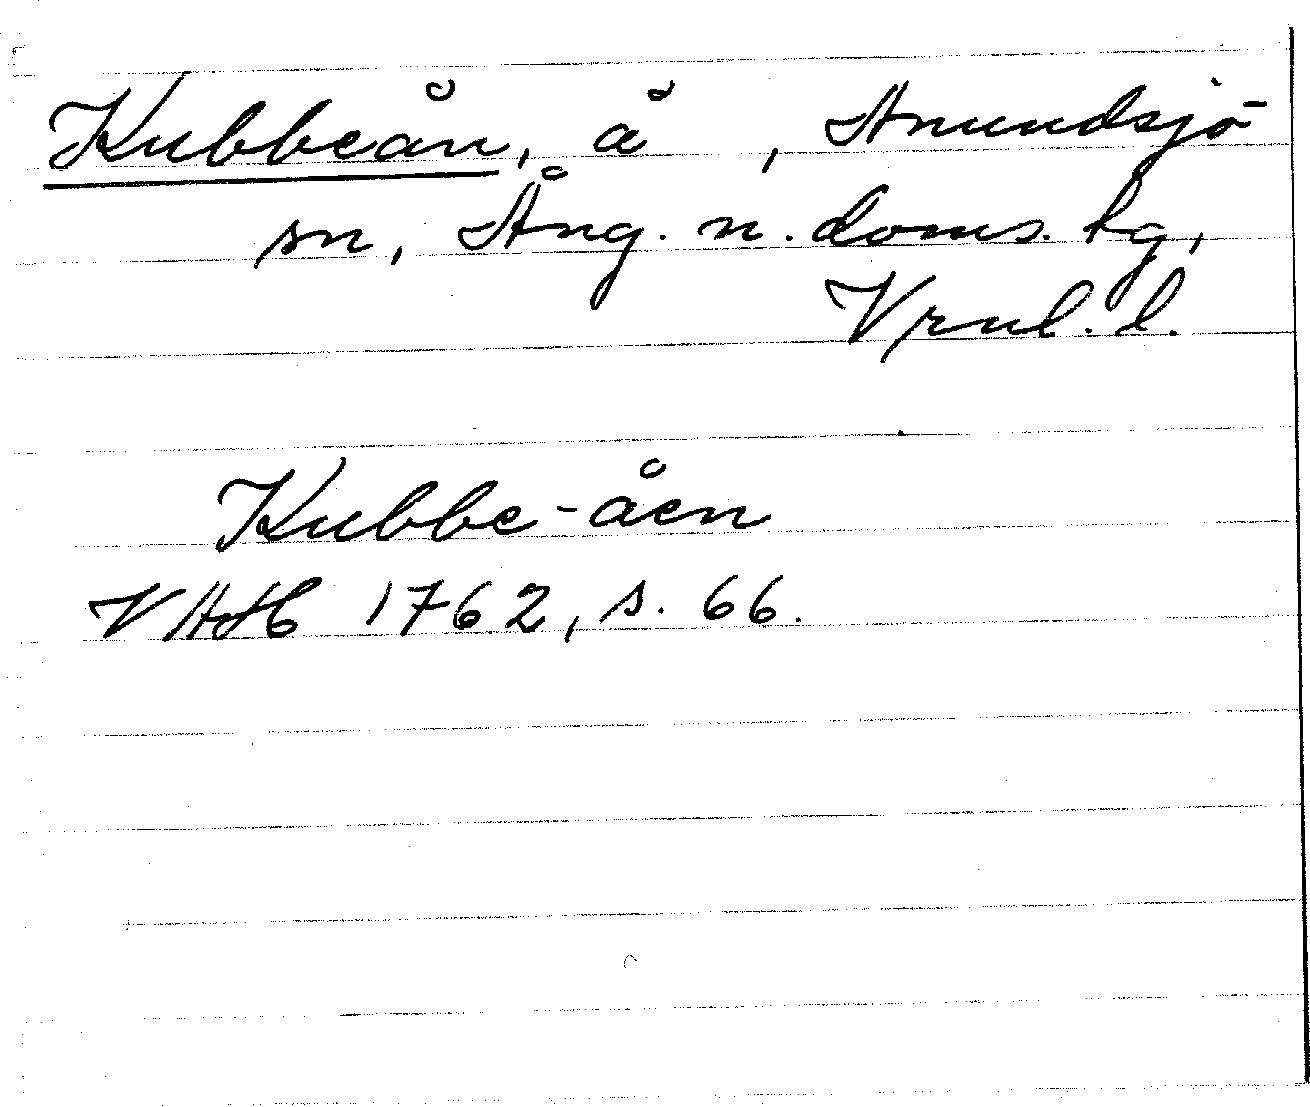 Kubbeån, å , Anundsjö
sn, Ång. n. doms. tg,
Vrnl. l.
Kubbe-åen
VAHb 1762, s. 66.